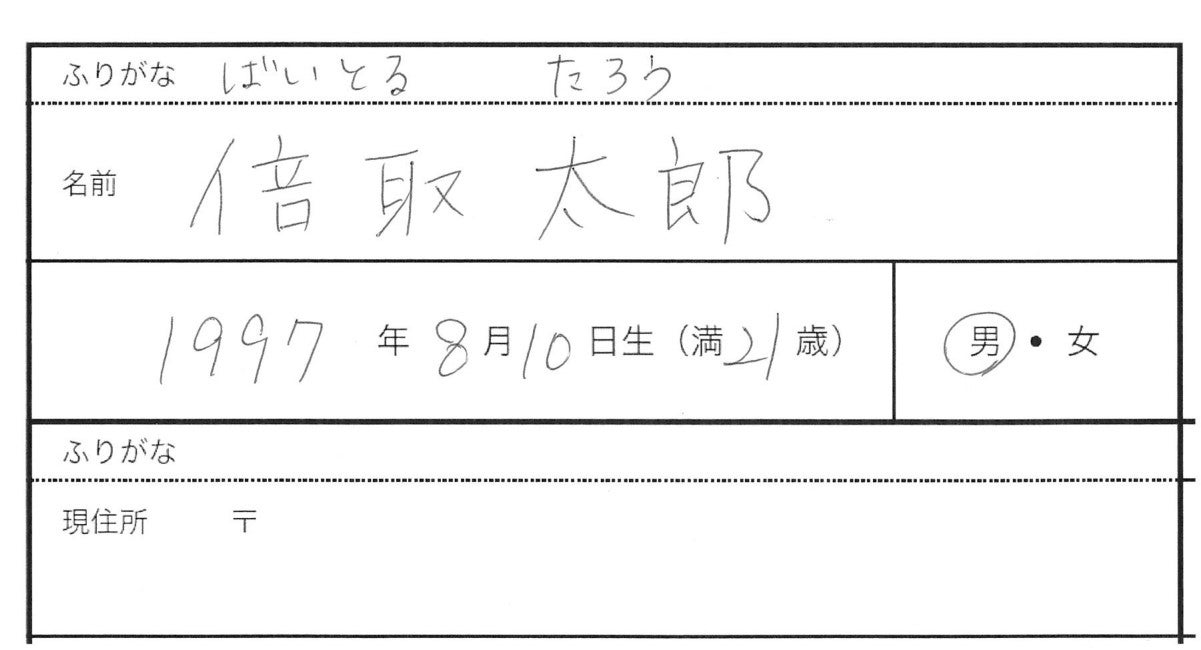 ふりがな ばいとる たろう
名前 倍取 太郎
1997 年 8 月 10 日生 (満 21 歳) 男・女
ふりがな
現住所 〒